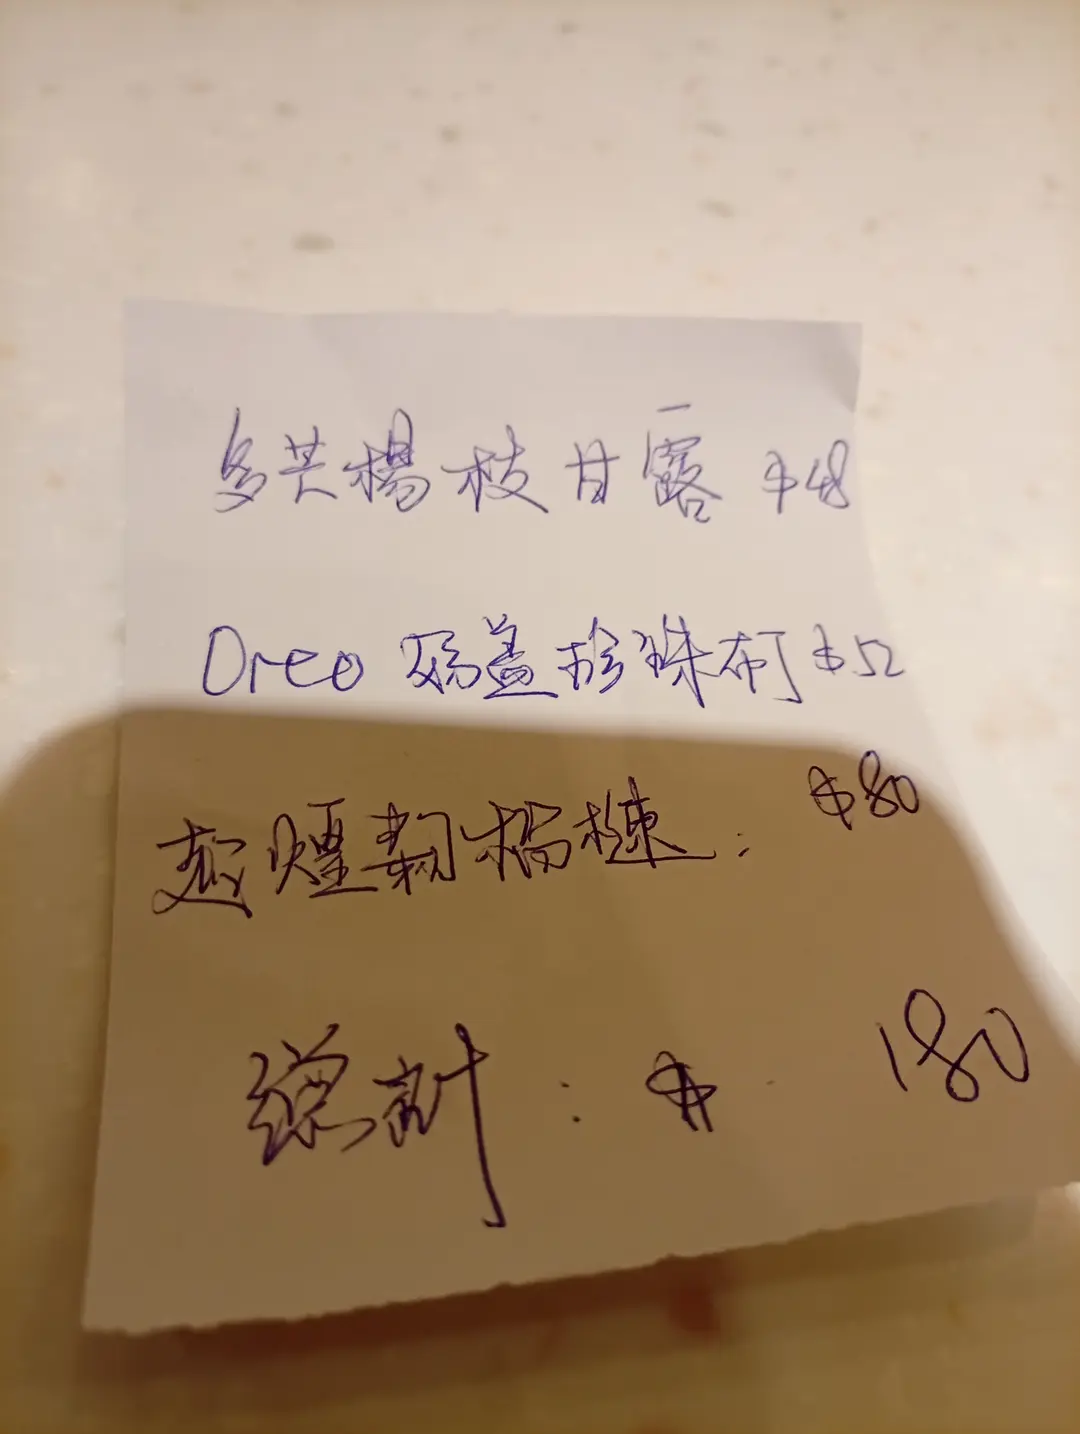 多芒楊枝甘露 $48
Oreo 奶蓋珍珠布丁 $52
超煙韌榴槤: $80
總計 : $ 180